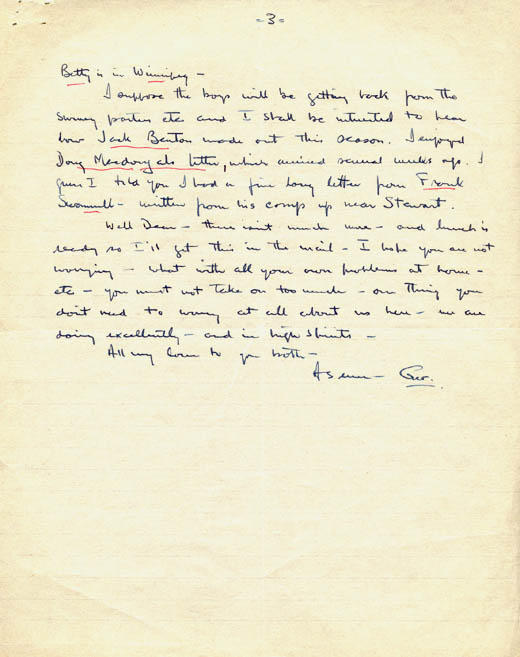 -3-
Betty is in Winnipeg -
I suppose the boys will be getting back from the
survey parties etc and I shall be interested to hear
how Jack Benton made out this season. I enjoyed
Doug Macdougals letter, which arrived several weeks ago. I
guess I told you I had a fine long letter from Frank
- written from his camp up near Stewart.
Well Dear - there isn't much more - and lunch is
ready so I'll get this in the mail - I hope you are not
worrying - what with all your own problems at home -
etc - you must not take on too much - one thing you
don't need to worry at all about us here - we are
doing excellently - and in high spirits -
All my love to you both -
As ever - Geo.